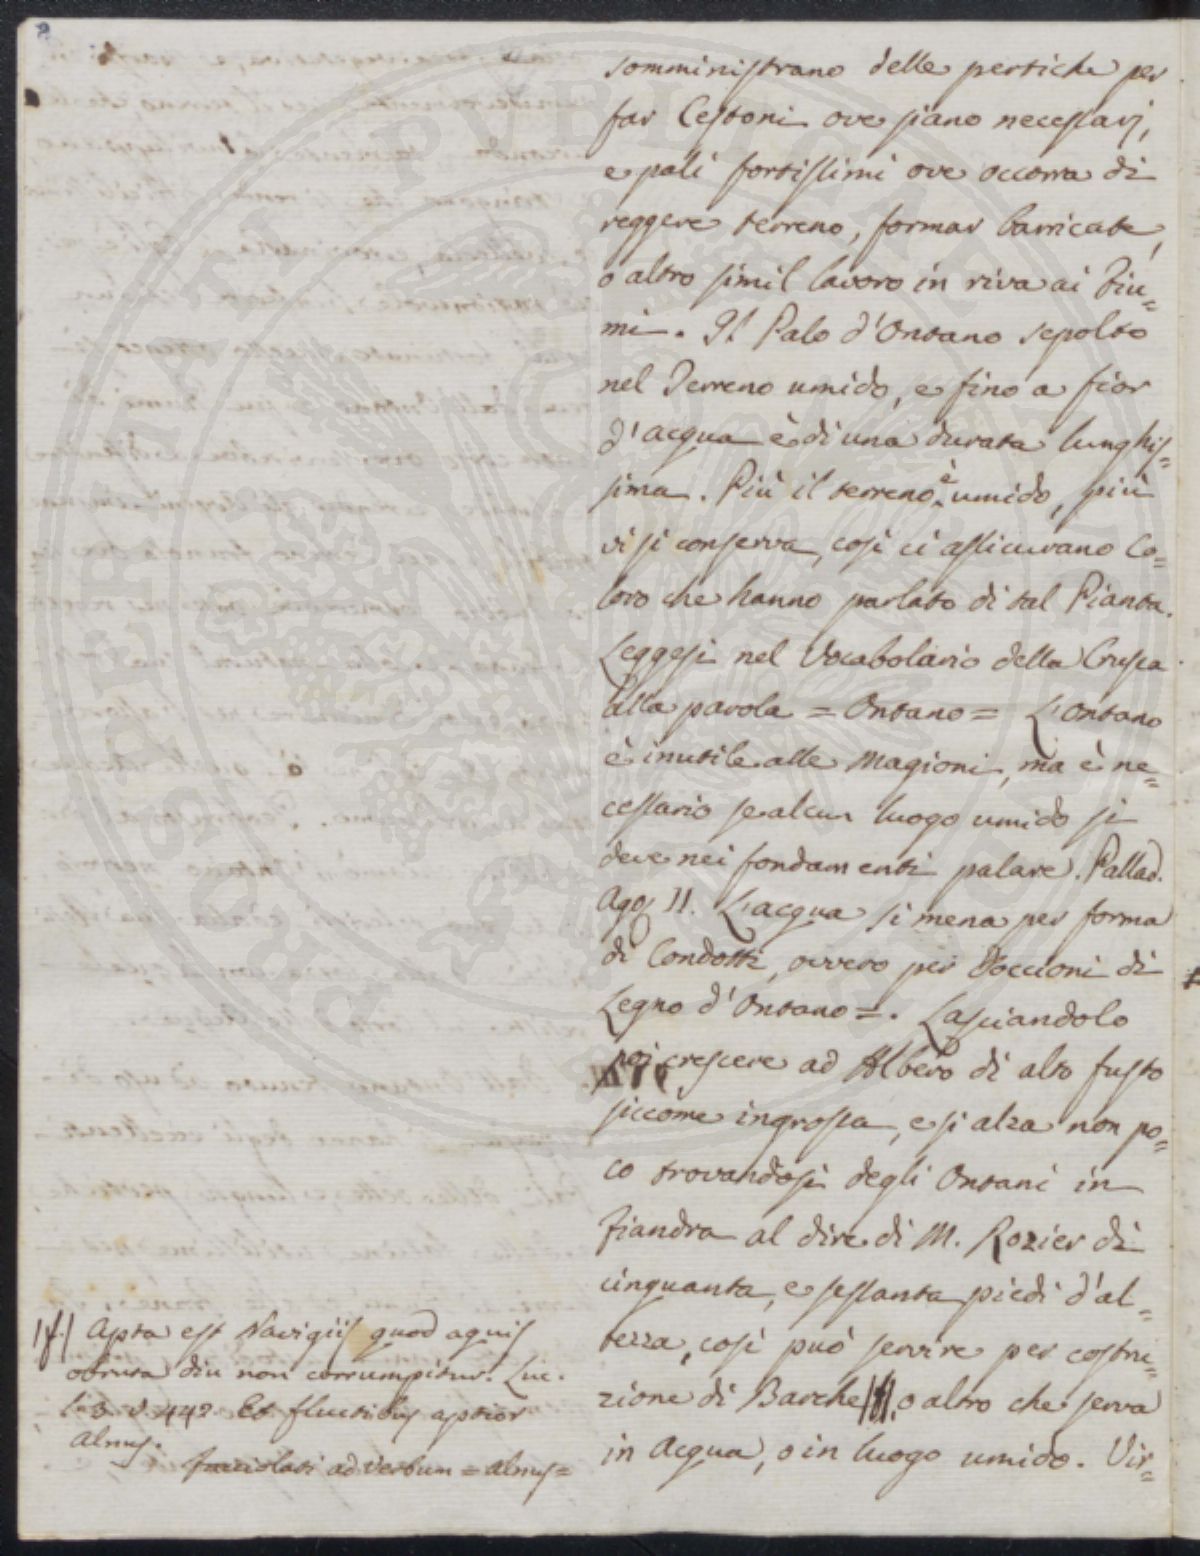 somministrano delle pertiche per
far Cestoni ove siano necessarj,
e pali fortissimi ove occorra di
reggere terreno, formar barricate,
o altro simil lavoro in riva ai Fiu=
mi. Il Palo d'Ontano sepolto
nel Terreno umido, e fino a fior
d'acqua è di una durata lunghis=
sima. Più il terreno è umido, più
vi si conserva, così ci assicurano Co=
loro che hanno parlato di tal Pianta.
Leggesi nel Vocabolario della Crusca
alla parola = Ontano = L'ontano
è inutile alle Magioni, ma è ne=
cessario se alcun luogo umido si
deve nei fondamenti palare. Pallad.
Ago. 11. L'acqua si mena per forma
di Condotti, ovvero per Doccioni di
Legno d'Ontano =. Lasciandolo
poi crescere ad Albero di alto fusto
siccome ingrossa, e si alza non po=
co trovandosi degli Ontani in
Fiandra al dire di M. Rozier di
cinquanta, e sessanta piedi d'al=
tezza, così può servire per costru=
zione di Barche |f|, o altro che serva
in Acqua, o in luogo umido. Vir=
|f.| Apta est Navigiis quod aquis
obruta diu non corrumpitur. Luc.
l. 3 v 442 Et fluctibus aptior
alnus.
Facciolati ad Verbum = alnus =
PROSPERITATI PVBLICAE AVGENDAE